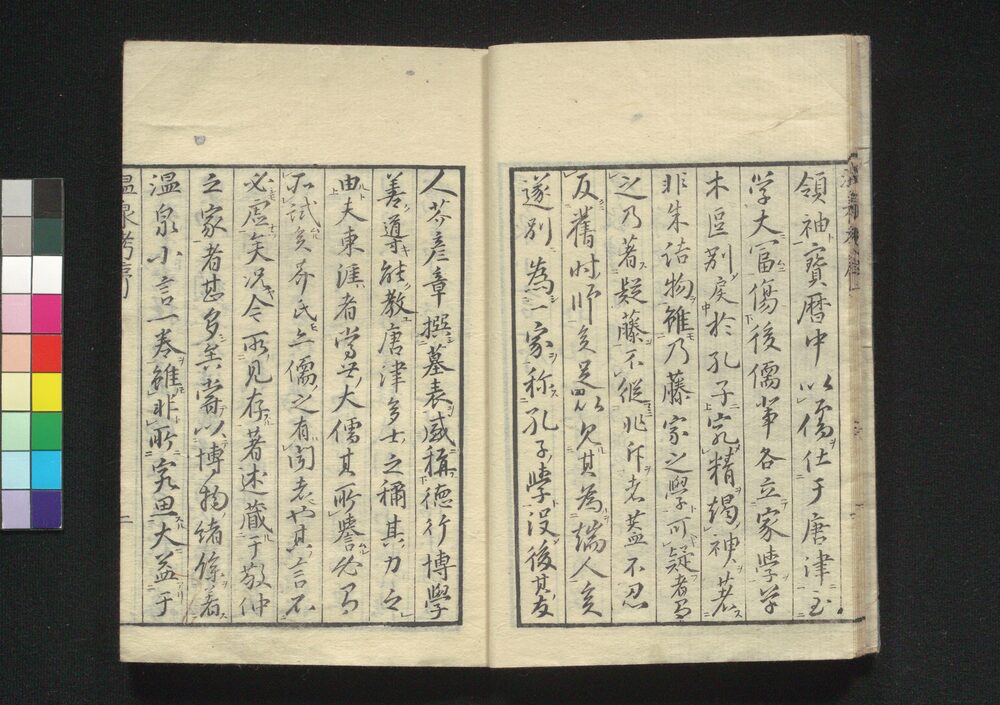 領袖寶暦中以儒仕于唐津
学大冨傷後儒輩各立家学
木區別戻於孔子究精竭神著
非朱詰物雖乃藤家之學可疑者
之乃著疑藤不縦非斥者蓋不忍
反舊時師矣足以見其為端人矣
遂別為一家称孔子學没後其友
人芥彦章撰墓表盛稱徳行博學
善導能教唐津多士之稱其力之
由夫東涯者當世大儒其所譽必
不試矣芥氏亦儒之有聞者也其言不
必虚矣况今所見存著述蔵于敬仲
之家者甚多矣嘗以博物緒餘着
温泉小言一巻雖非所究思大益于
温泉考序
二